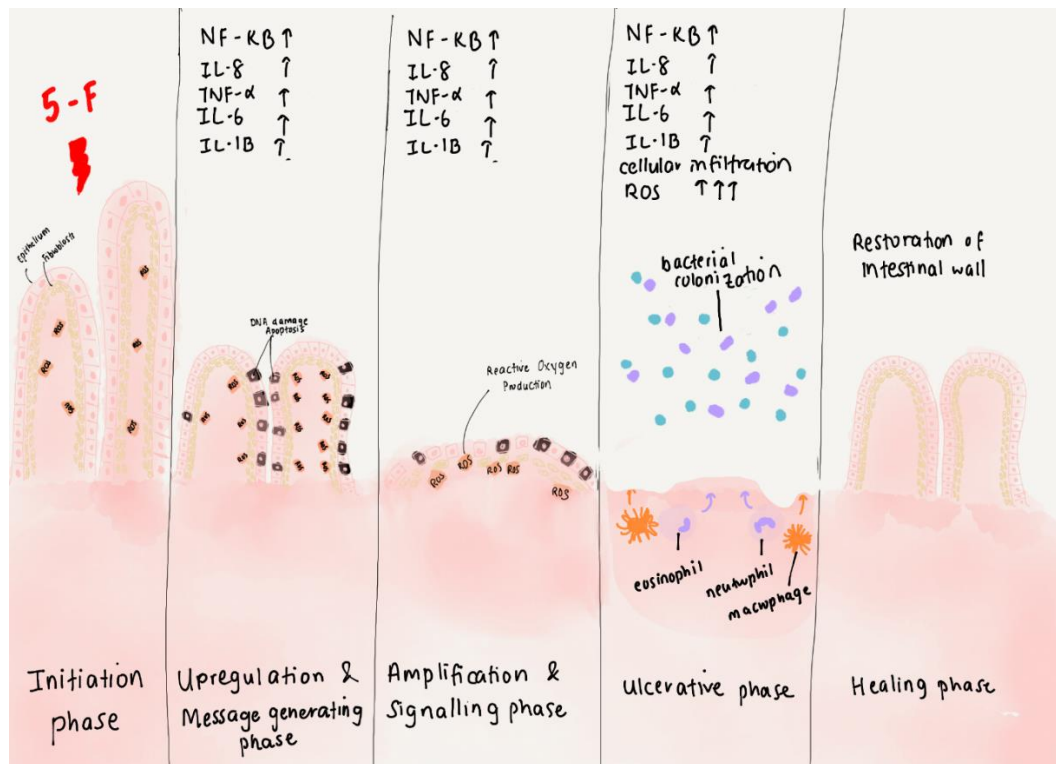 5-F
Epithelium
Fibroblasts
ROS
ROS
ROS
ROS
ROS
ROS
ROS
Initiation
phase
NF-KB ↑
IL-8 ↑
TNF-α ↑
IL-6 ↑
IL-1B ↑
DNA damage
Apoptosis
ROS
ROS
ROS
ROS
ROS
ROS
ROS
ROS
ROS
ROS
ROS
ROS
ROS
ROS
Upregulation &
Message generating
phase
NF-KB ↑
IL-8 ↑
TNF-α ↑
IL-6 ↑
IL-1B ↑
Reactive Oxygen
Production
ROS
ROS
ROS
ROS
ROS
Amplification &
Signalling phase
NF-KB ↑
IL-8 ↑
TNF-α ↑
IL-6 ↑
IL-1B ↑
cellular infiltration
ROS ↑↑↑
bacterial
colonization
eosinophil
neutrophil
macrophage
Ulcerative phase
Restoration of
intestinal wall
Healing phase